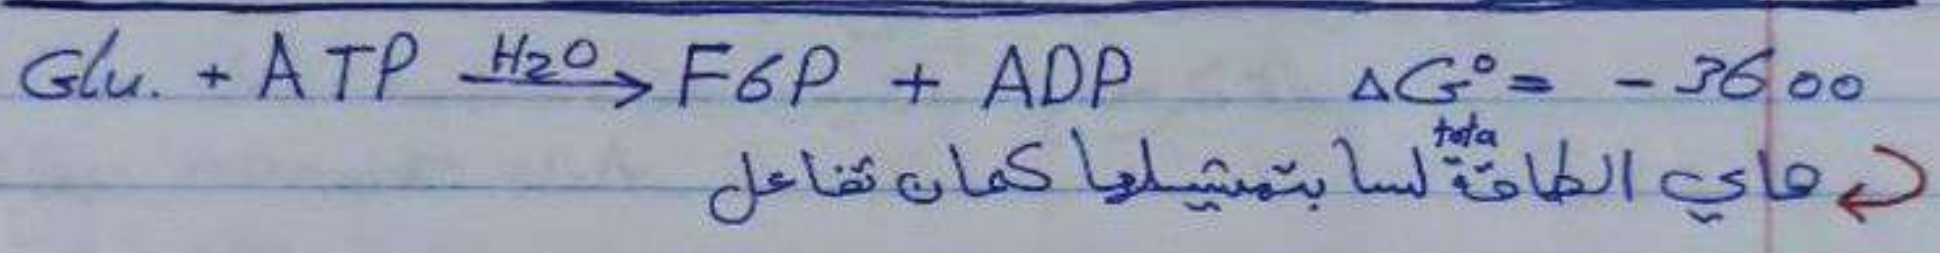 Glu. + ATP —H2O→ F6P + ADP ΔG° = - 3600
هاي الطاقة tota لسا بتمشيلها كمان تفاعل